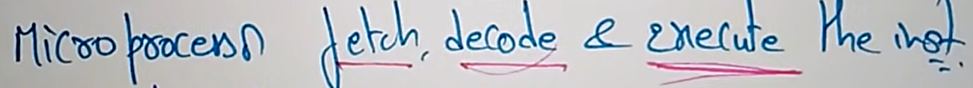 Microprocessor fetch, decode & execute the inst.